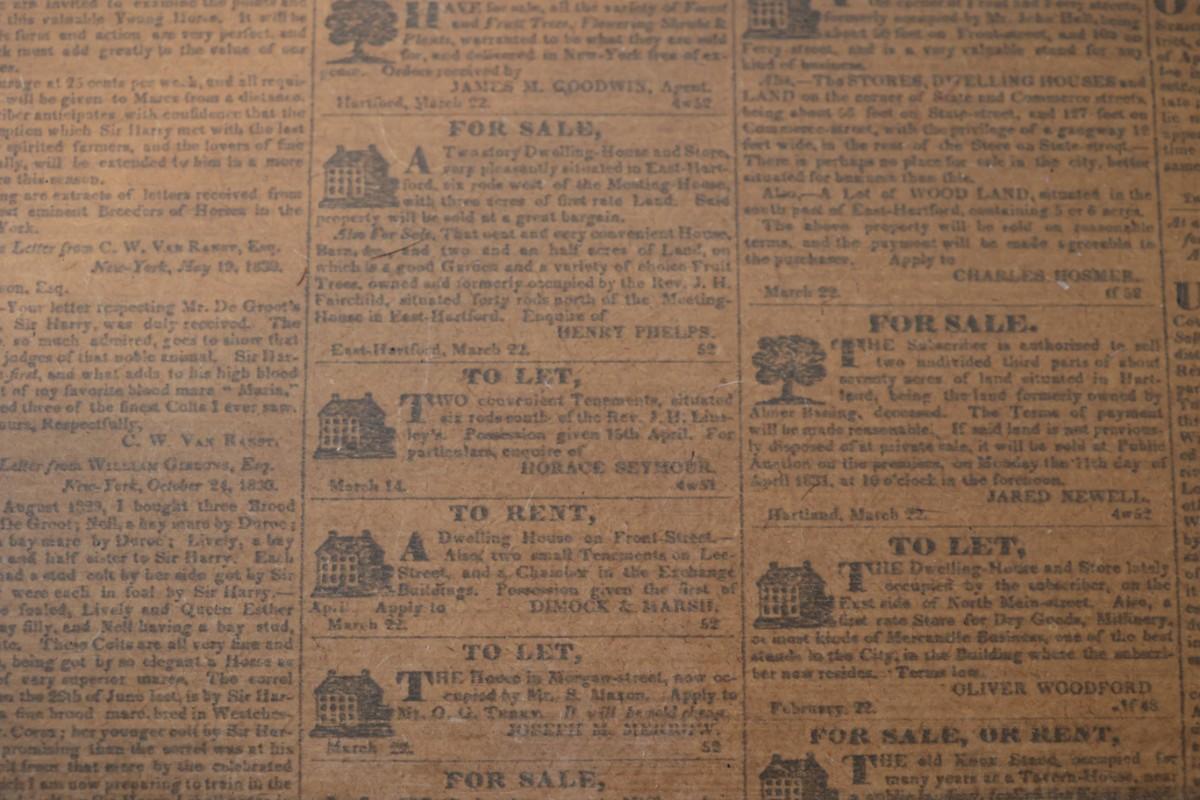 this valuable Young Horse. It will be
form and action are very perfect, and
must add greatly to the value of our
at 25 cents per week, and all requi-
will be given to Mares from a distance.
anticipates with confidence that the
which Sir Harry met with the last
spirited farmers, and the lovers of fine
will be extended to him in a more
this season.
are extracts of letters received from
eminent Breeders of Horses in the
York.
Letter from C. W. VAN RANST, Esq.
New-York, May 19, 1830.
Esq.
Your letter respecting Mr. De Groot's
Sir Harry, was duly received. The
so much admired, goes to show that
judges of that noble animal. Sir Har-
first, and what adds to his high blood
of my favorite blood mare "Maria,"
three of the finest Colts I ever saw.
Respectfully,
C. W. VAN RANST.
Letter from WILLIAM GIBBONS, Esq.
New-York, October 24, 1830.
August 1829, I bought three Brood
De Groot; Nell, a bay mare by Duroc;
bay mare by Duroc; Lively, a bay
and half sister to Sir Harry. Each
had a stud colt by her side got by Sir
were each in foal by Sir Harry.—
foaled, Lively and Queen Esther
filly, and Nell having a bay stud,
These Colts are all very fine and
being got by so elegant a Horse as
of very superior mares. The sorrel
the 26th of June last, is by Sir Har-
fine brood mare, bred in Westches-
her younger colt by Sir Har-
promising than the sorrel was at his
from that mare by the celebrated
I am now preparing to train in the
HAVE for sale, all the variety of Food
and Fruit Trees, Flowering Shrubs &
Plants, warranted to be what they are sold
for, and delivered in New-York free of ex-
pence. Orders received by
JAMES M. GOODWIN, Agent.
Hartford, March 22. 4w52
FOR SALE,
A Two story Dwelling-House and Store,
very pleasantly situated in East-Hart-
ford, six rods west of the Meeting-House,
with three acres of first rate Land. Said
property will be sold at a great bargain.
Also For Sale, That neat and very convenient House,
Barn, &c. and two and an half acres of Land, on
which is a good Garden and a variety of choice Fruit
Trees, owned and formerly occupied by the Rev. J. H.
Fairchild, situated forty rods north of the Meeting-
House in East-Hartford. Enquire of
HENRY PHELPS.
East-Hartford, March 22. 52
TO LET,
TWO convenient Tenements, situated
six rods south of the Rev. J. H. Lins-
ley's. Possession given 15th April. For
particulars, enquire of
HORACE SEYMOUR.
March 14. 4w51
TO RENT,
A Dwelling House on Front-Street.—
Also, two small Tenements on Lee-
Street, and a Chamber in the Exchange
Buildings. Possession given the first of
April. Apply to DIMOCK & MARSH.
March 22. 52
TO LET,
THE House in Morgan-street, now oc-
cupied by Mr. S. Maxon. Apply to
Mr. O. G. TERRY. It will be sold cheap.
JOSEPH M. MERROW.
March 22. 52
FOR SALE,
formerly occupied by Mr. John Hall, being
about 50 feet on Front-street, and
Ferry-street, and is a very valuable stand for any
kind of business.
Also,—The STORES, DWELLING HOUSES and
LAND on the corner of State and Commerce streets,
being about 56 feet on State-street, and 127 feet on
Commerce-street, with the privilege of a gangway 12
feet wide, in the rear of the Store on State-street.—
There is perhaps no place for sale in the city, better
situated for business than this.
Also,—A Lot of WOOD LAND, situated in the
south part of East-Hartford, containing 5 or 6 acres.
The above property will be sold on reasonable
terms, and the payment will be made agreeable to
the purchaser. Apply to
CHARLES HOSMER.
March 22. tf 52
FOR SALE.
THE Subscriber is authorized to sell
two undivided third parts of about
seventy acres of land situated in Hart-
land, being the land formerly owned by
Abner Basing, deceased. The Terms of payment
will be made reasonable. If said land is not previous-
ly disposed of at private sale, it will be sold at Public
Auction on the premises, on Monday the 11th day of
April 1831, at 10 o'clock in the forenoon.
JARED NEWELL.
Hartland, March 22. 4w52
TO LET,
THE Dwelling-House and Store lately
occupied by the subscriber, on the
East side of North Main-street. Also, a
first rate Store for Dry Goods, Millinery,
or most kinds of Mercantile Business, one of the best
stands in the City, in the Building where the subscri-
ber now resides. Terms low.
OLIVER WOODFORD
February, 22. tf 48
FOR SALE, OR RENT,
THE old Knox Stand, occupied for
many years as a Tavern-House, near